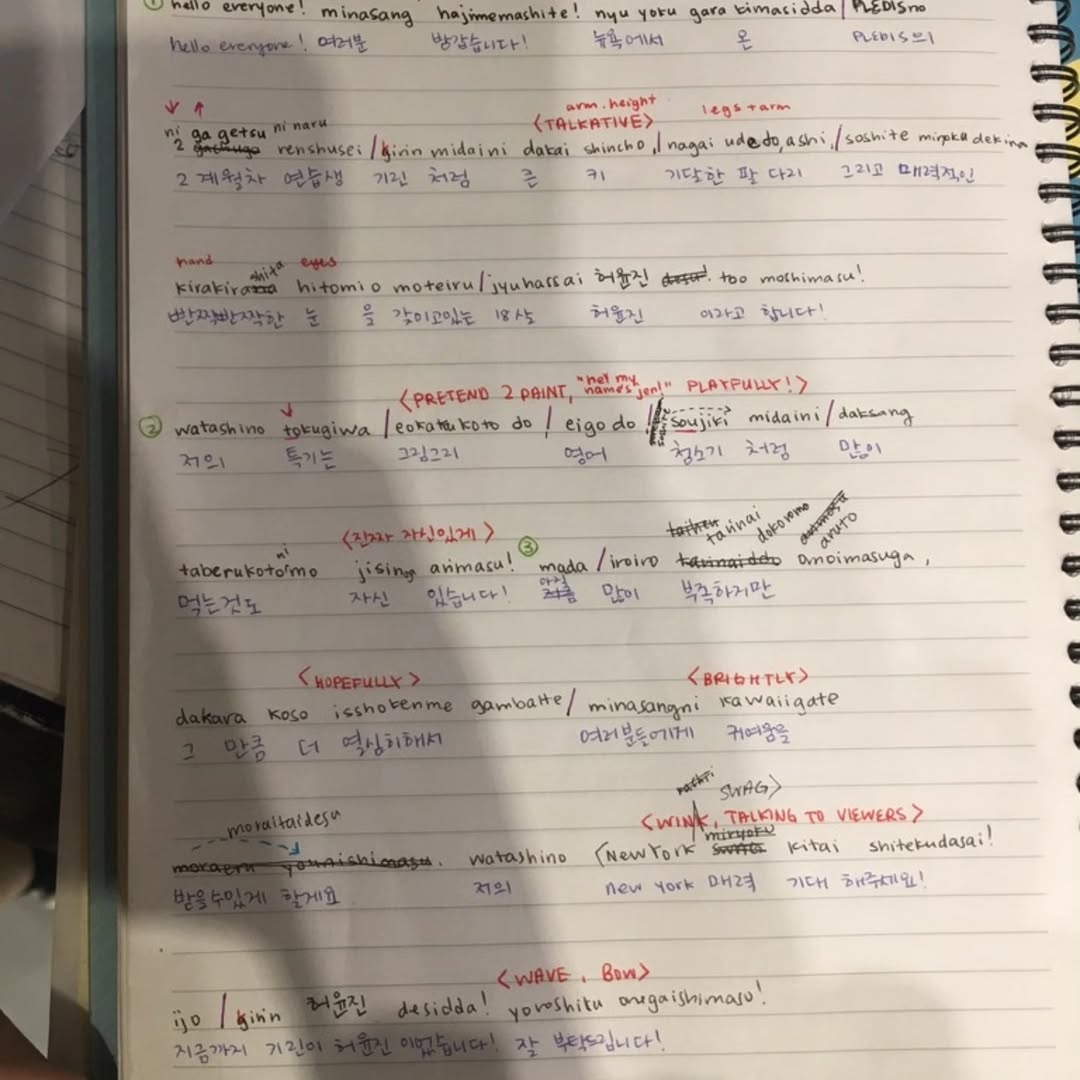 ① hello everyone! minasang hajimemashite! nyu yoku gara kimasidda / PLEDISno
hello everyone! 여러분 방갑습니다! 뉴욕에서 온 PLEDIS의
↓ ↑ arm.height legs + arm
ni ga getsu ni naru <TALKATIVE>
2 renshusei / kirin midaini dakai shincho, / nagai udedo, ashi, / soshite miroku dekina
2 계월차 연습생 기린 처럼 큰 키 기달한 팔 다리 그리고 매력적인
hand shita eyes
kirakira hitomi o moteiru / jyuhassai 허윤진 desu! too moshimasu!
빤짝빤짝한 눈 을 갖이고있는 18살 허윤진 이라고 합니다!
<PRETEND 2 PAINT, "hey my names jen!" PLAYFULLY!>
② watashino tokugiwa / eokakukoto do / eigo do / soujiki midaini / daksang
저의 특기는 그림그리 영어 청소기 처럼 많이
tarinai dokoromo aruto
<진짜 자신있게>
taberukotonimo jisinga arimasu! ③ mada / iroiro tarinaiddo omoimasuga,
먹는것도 자신 있습니다! 아직 많이 부족하지만
<HOPEFULLY> <BRIGHTLY>
dakara koso isshokenme gambatte / minasangni kawaiigate
그 만큼 더 열심히해서 여러분들에게 귀여움을
SWAG>
moraitaidesu <WINK, TALKING TO VIEWERS>
miryoku
moraeru younishimasu. watashino (New York kitai shitekudasai!
받을수있게 할게요 저의 new york 매력 기대 해주세요!
<WAVE, BOW>
ijo / kirin 허윤진 desidda! yoroshiku onegaishimasu!
지금까지 기린이 허윤진 이었습니다! 잘 부탁드립니다!